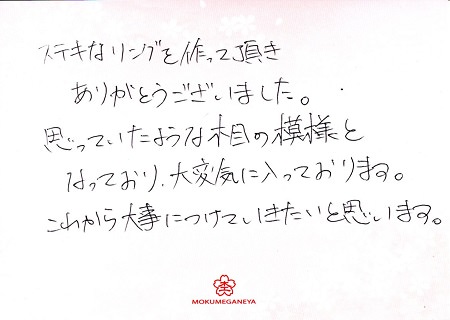 ステキなリングを作って頂き
ありがとうございました。
思っていたような木目の模様と
なっており、大変気に入っております。
これから大事につけていきたいと思います。
MOKUMEGANEYA